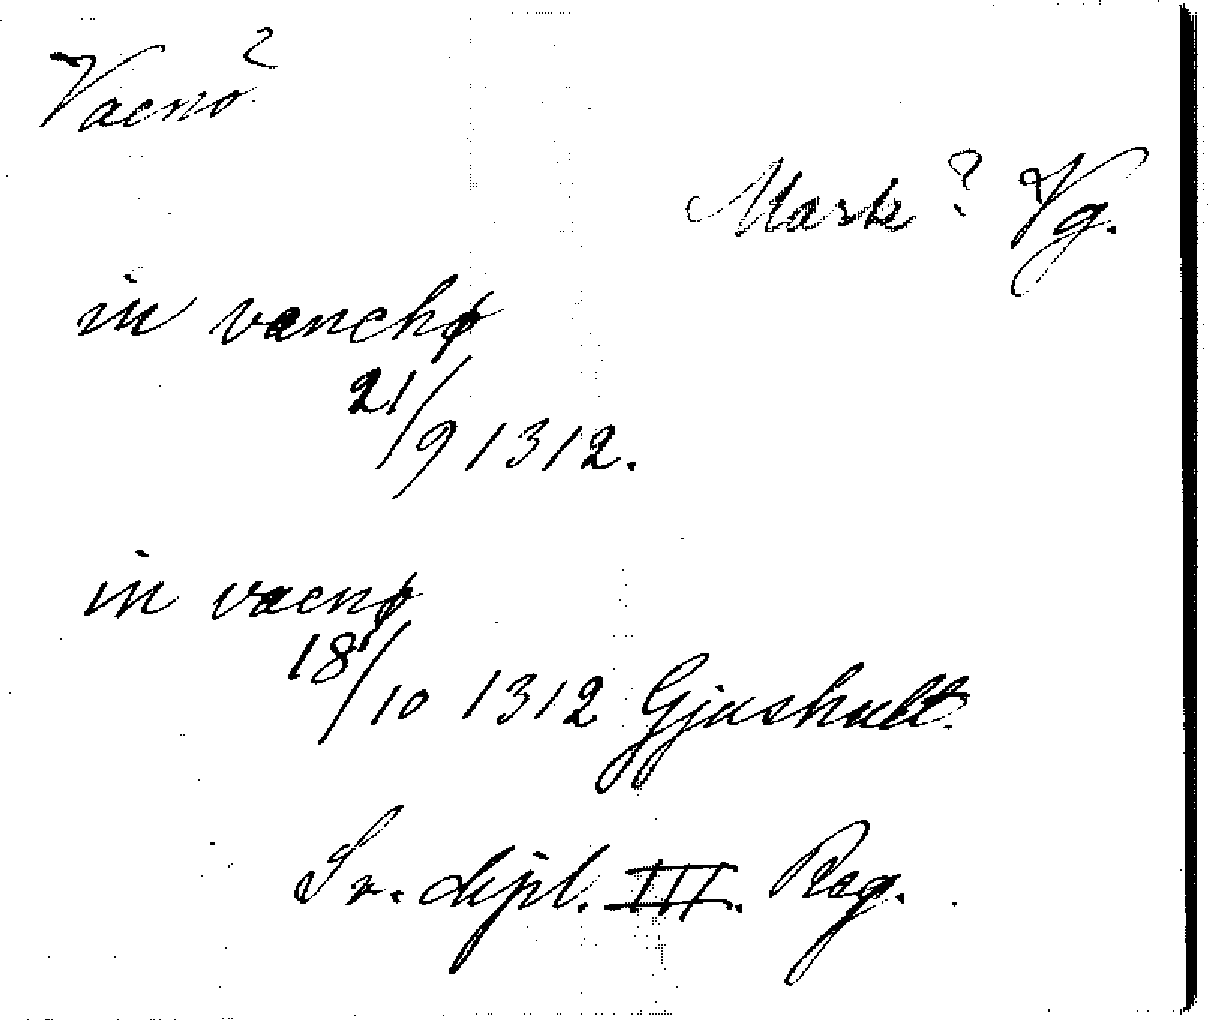 Vacnö?
Mark? Vg.
in vænchø
21/9 1312.
in væcnø
18/10 1312 Gjushult.
Sv. dipl. III. Reg.